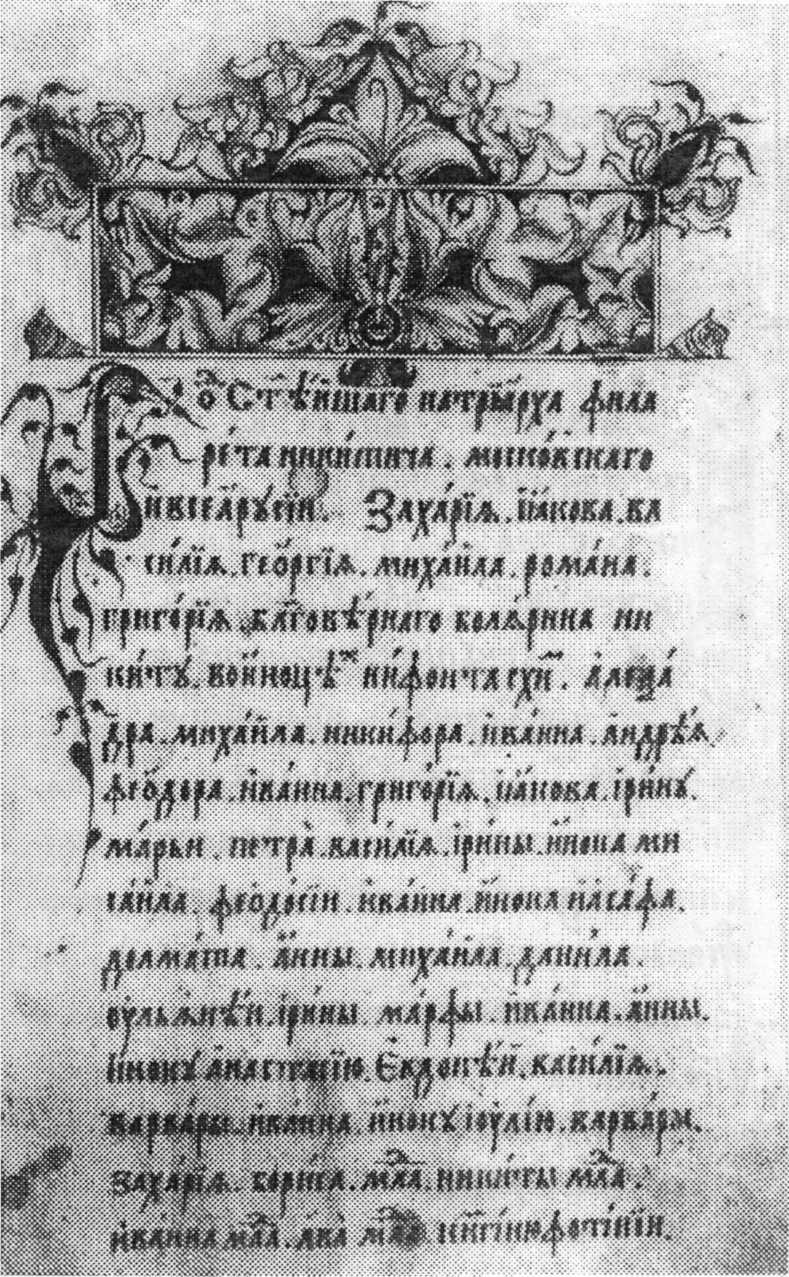 Рѡ́ Ст҃ѣ́йшаго патрїа́рха фила
ре́та ники́тича. моско́вскаго
и҆ всеа̀ рꙋсі́и. Заха́рїѧ. і҆а́кова. ва
си́лїѧ. гео́ргїѧ. миха́ила. рома́на.
григо́рїѧ. бл҃гове́рнаго болѧ́рина ни
ки́тꙋ. во и҆ноцѣх ни́фонта схи. але҆ѯа́
дра. миха́ила. ники́фора. и҆ва́нна. а҆ндре́ѧ.
фео́дора. и҆ва́нна. григо́рїѧ. і҆а́кова. іри́нꙋ.
ма́рьи. петра̀. васи́лїѧ. іри́ны. и҆́нока ми
саи́ла. феодо́сїи. и҆ва́нна. и҆́нока и҆аса́фа.
долма́та. а҆́нны. миха́ила. дании́ла.
оульѧне́и. іри́ны. ма́рфы. и҆ва́нна. а҆́нны.
и҆нокꙋ а҆настасі́ю. Е҆вдоке́и. васи́лїѧ.
варва́ры. и҆ва́нна. и҆нокꙋ іоулі́ю. варва́ры.
заха́рїѧ. бори́са. млⷣа. ники́ты млⷣа.
и҆ва́нна млⷣа. два̀ млⷣа. кнѧги́ню фоти́нїи.